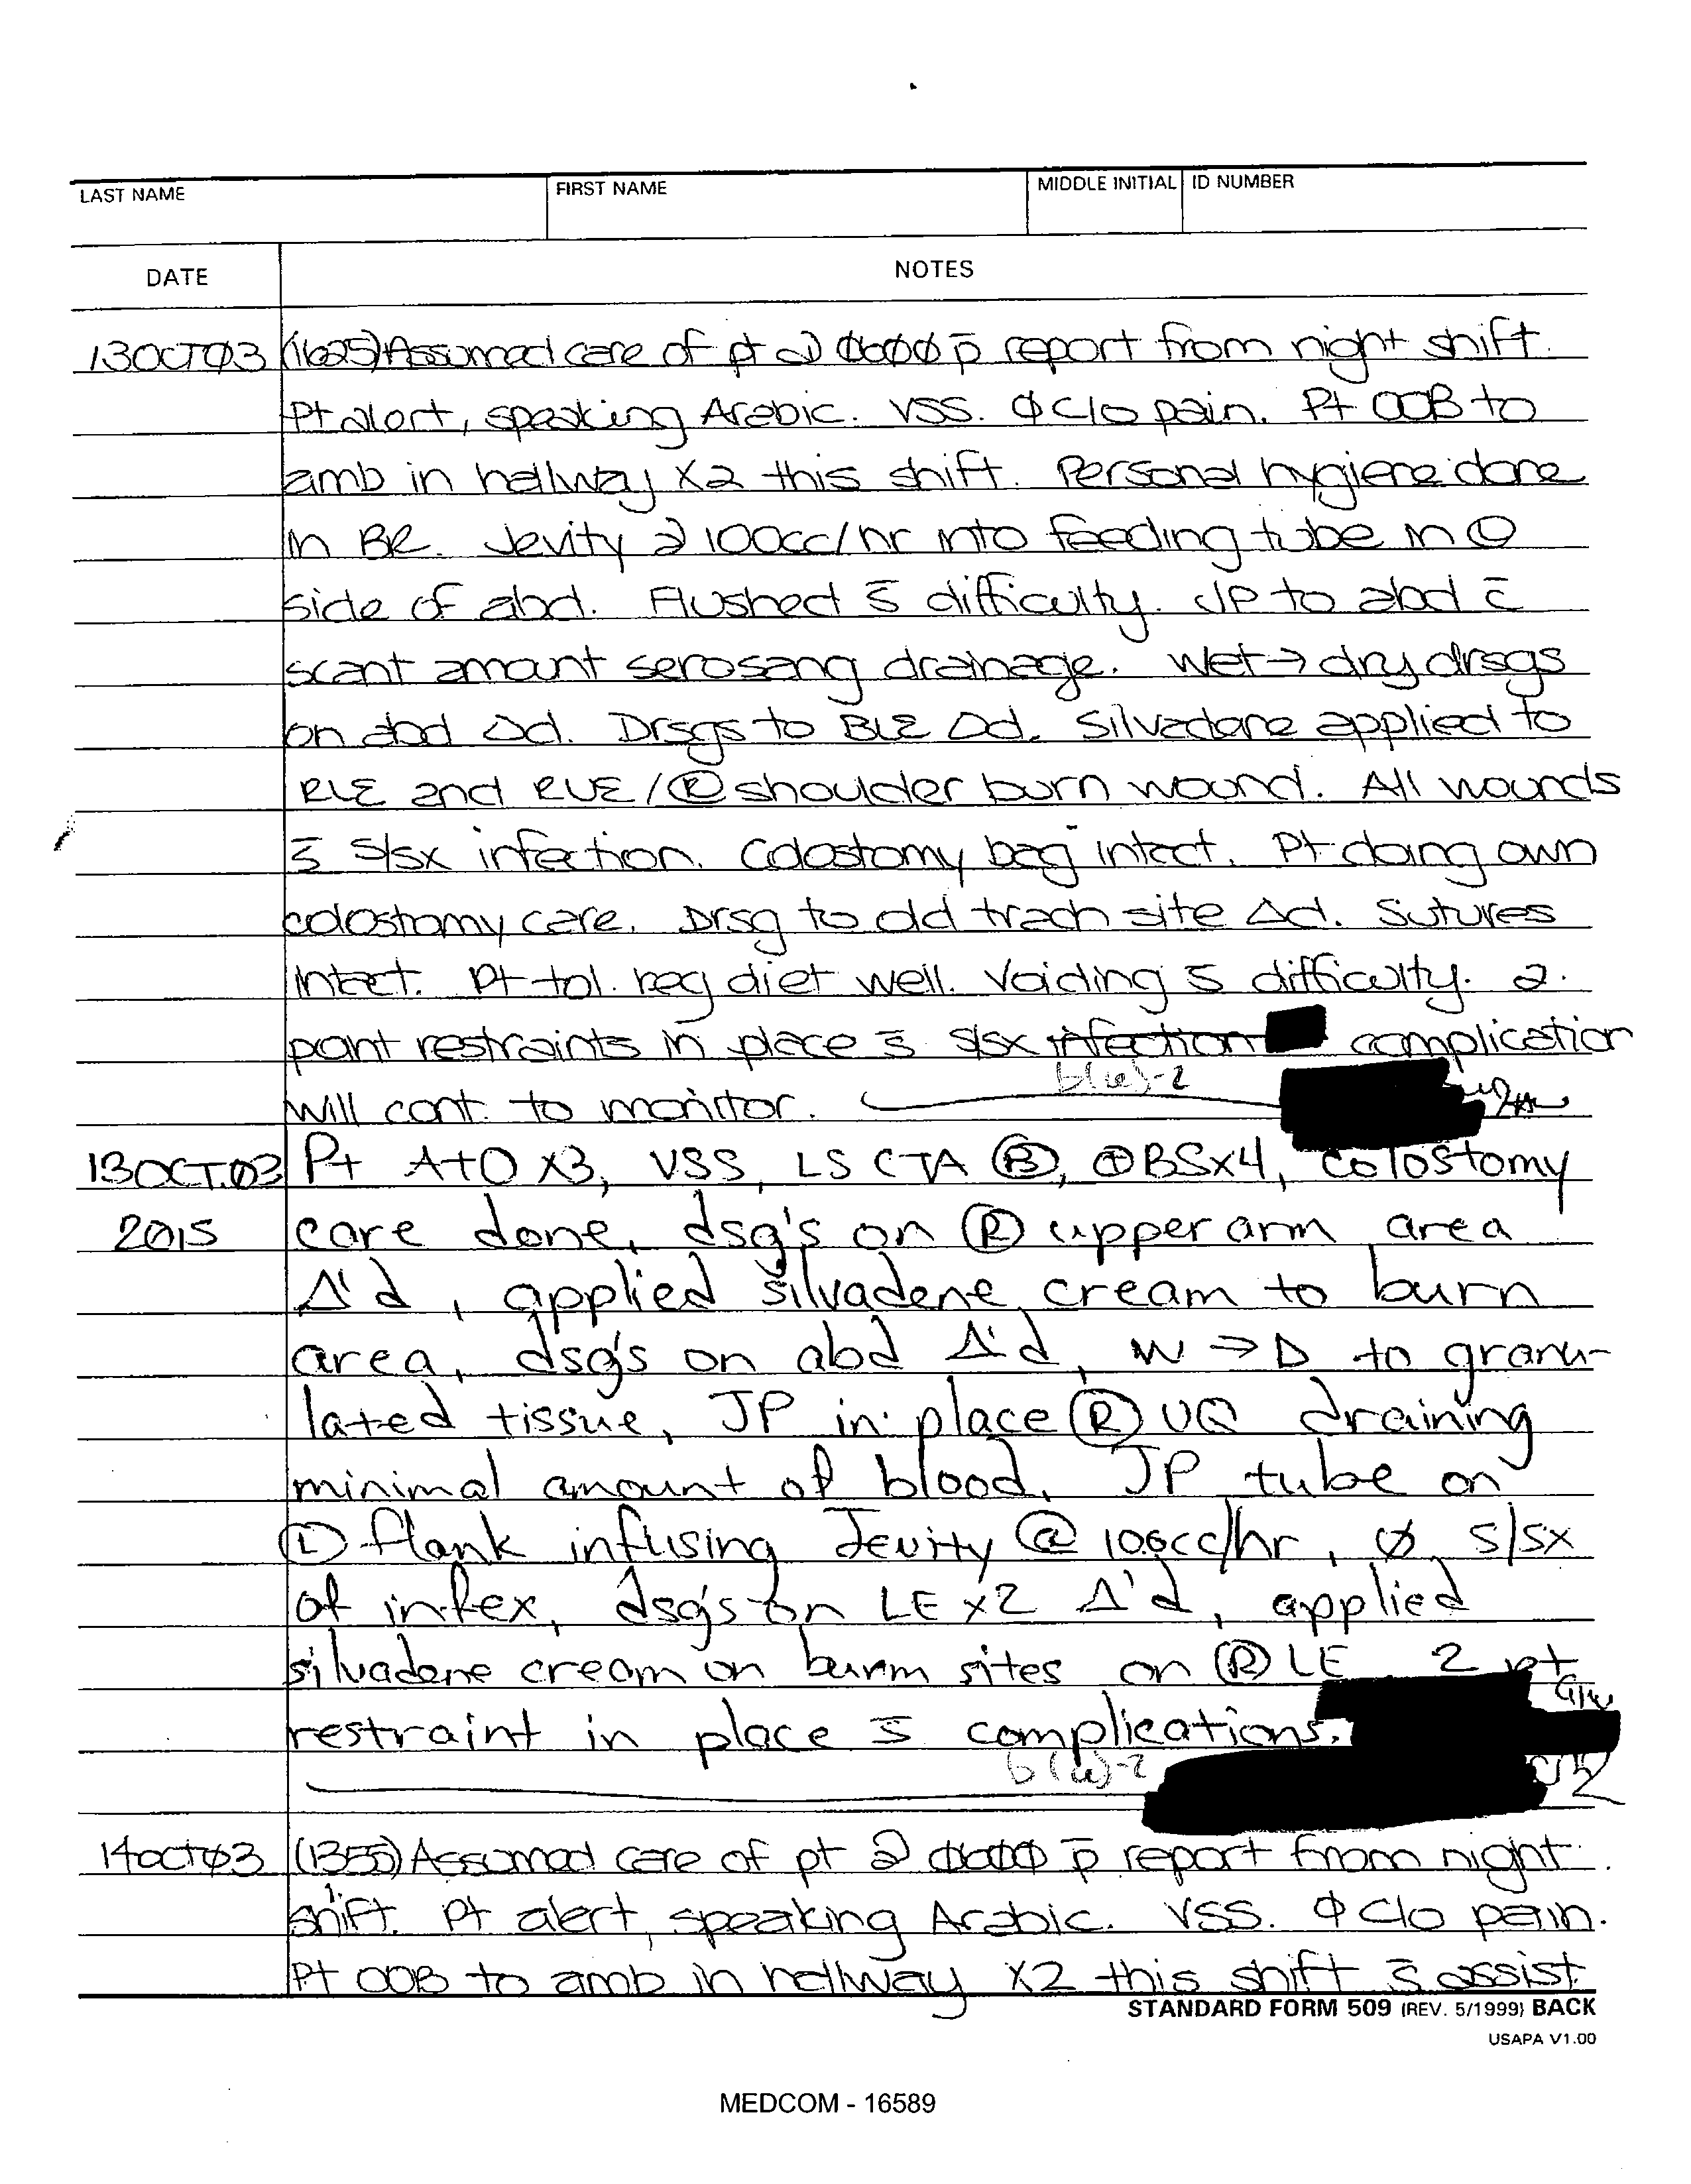 LAST NAME FIRST NAME MIDDLE INITIAL ID NUMBER
DATE NOTES
13OCTØ3 (1625) Assumed care of pt @ Ø6ØØ p̄ report from night shift.
Pt alert, speaking Arabic. VSS. Ø c/o pain. Pt OOB to
amb in hallway X2 this shift. Personal hygiene done
in BR. Jevity @ 100cc/hr into feeding tube in Ⓛ
side of abd. Flushed s̄ difficulty. JP to abd c̄
scant amount serosang drainage. Wet→dry drsgs
on abd Δd. Drsgs to BLE Δd. Silvadane applied to
RLE and RUE/Ⓡ shoulder burn wound. All wounds
s̄ s/sx infection. Colostomy bag intact. Pt doing own
colostomy care. Drsg to old trach site Δd. Sutures
intact. Pt tol. reg diet well. Voiding s̄ difficulty. 2.
point restraints in place s̄ s/sx infection complication
b(6)-2
will cont. to monitor.
13OCT.Ø3 Pt A+O X3, VSS, LS CTA Ⓑ, ⊕BSx4, colostomy
2015 care done, dsg's on Ⓡ upper arm area
Δ'd, applied silvadene cream to burn
area, dsg's on abd Δ'd, W → D to granu-
lated tissue, JP in place Ⓡ UQ draining
minimal amount of blood, JP tube on
Ⓛ flank infusing Jevity @ 100cc/hr, Ø s/sx
of infex, dsg's on LE x2 Δ'd, applied
silvadene cream on burn sites on Ⓡ LE 2 pt
restraint in place s̄ complications.
b(6)-2
14OCTØ3 (1355) Assumed care of pt @ Ø6ØØ p̄ report from night
shift. Pt alert, speaking Arabic. VSS. Ø c/o pain.
Pt OOB to amb in hallway X2 this shift s̄ assist
STANDARD FORM 509 (REV. 5/1999) BACK
USAPA V1.00
MEDCOM - 16589